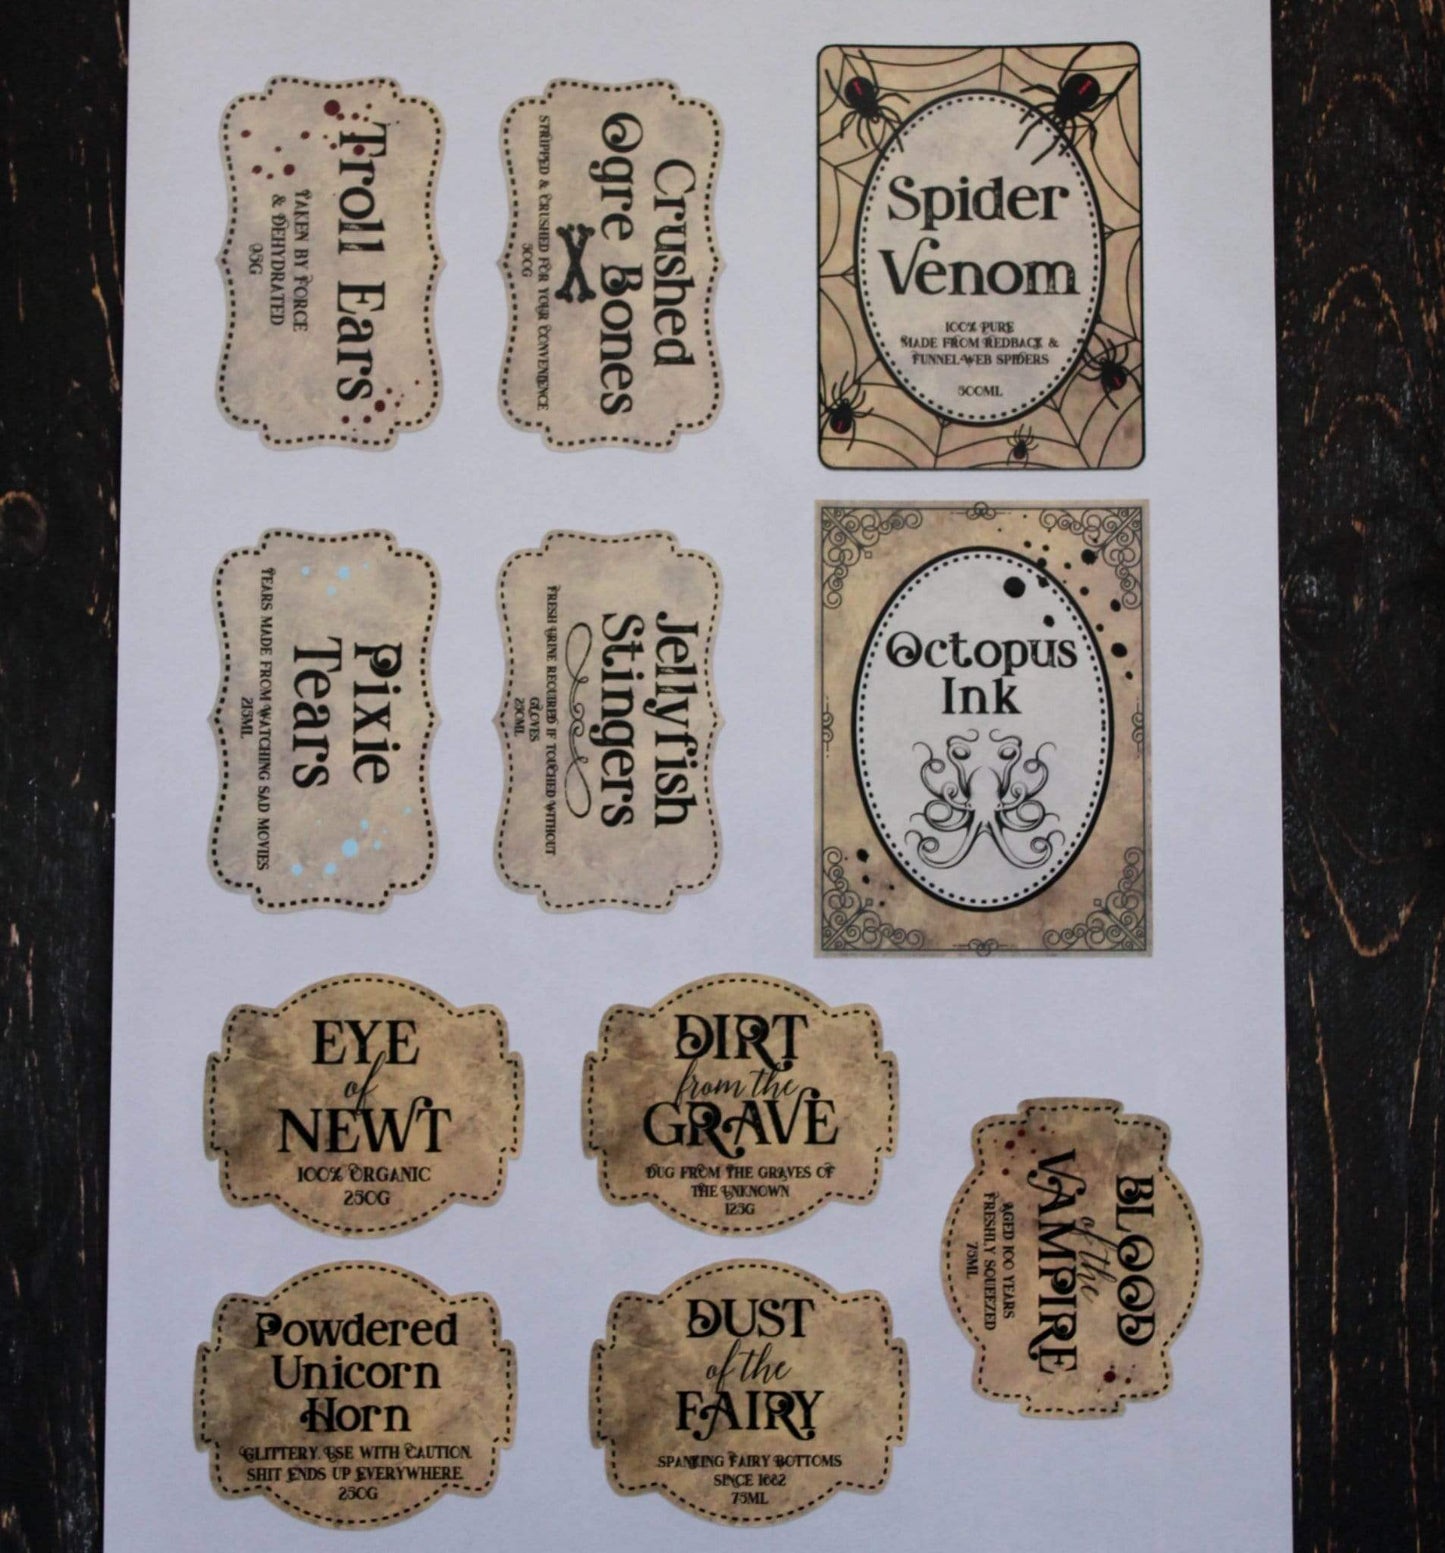 Troll Ears
TAKEN BY FORCE
& DEHYDRATED
95G
Crushed
Ogre Bones
STRIPPED & CRUSHED FOR YOUR CONVENIENCE
500G
Spider
Venom
100% PURE
MADE FROM REDBACK &
FUNNEL-WEB SPIDERS
500ML
Pixie
Tears
TEARS MADE FROM WATCHING SAD MOVIES
215ML
Jellyfish
Stingers
FRESH URINE REQUIRED IF TOUCHED WITHOUT
GLOVES
250ML
Octopus
Ink
EYE
of
NEWT
100% ORGANIC
250G
DIRT
from the
GRAVE
DUG FROM THE GRAVES OF
THE UNKNOWN
125G
BLOOD
of the
VAMPIRE
AGED 100 YEARS
FRESHLY SQUEEZED
75ML
Powdered
Unicorn
Horn
GLITTERY. USE WITH CAUTION.
SHIT ENDS UP EVERYWHERE.
250G
DUST
of the
FAIRY
SPANKING FAIRY BOTTOMS
SINCE 1682
75ML